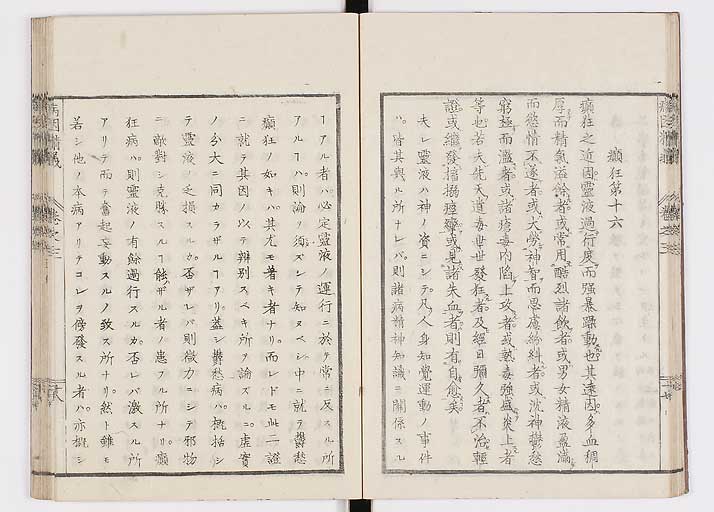 癲狂第十六
癲狂之近因靈液過行度而强暴躁動也其遠因多血稠
厚而精氣溢餘者或常用酷烈諸飲者或男女精液盈滿
而慾情不遂者或大勞神智而思慮紛糾者或沈神鬱愁
窮極而濫者或諸瘡毒内陷上攻者或熱毒强盛炎上者
等也若夫先天遺毒世世發狂者及經日彌久者不治輕
證或繼發搐搦痙攣或見諸失血者則有自愈矣
夫レ靈液ハ神ノ資ニシテ凡人身知覺運動ノ事件
ハ皆其與ル所ナレバ則諸病精神知識ニ關係スル
ーアル者ハ必定靈液ノ運行ニ於テ常ニ反スル所
アルーハ則論ヲ須ズシテ知ヌベシ中ニ就テ鬱愁
癲狂ノ如キハ其尤モ著キ者ナリ而レドモ此二證
ニ就テ其因ノ以テ辨別スベキ所ヲ論ズルニ虛實
ノ分大ニ同カラザルーアリ蓋シ鬱愁病ハ概括シ
テ靈液ノ乏損スルカ否ザレバ則微力ニシテ邪物
ニ敵對シ克勝スルー能ザル者ノ患フル所ナリ癲
狂病ハ則靈液ノ有餘過行スルカ否レバ激スル所
アリテ而テ奮起妄動スルノ致ス所ナリ然ト雖モ
若シ他ノ本病アリテコレヲ傍發スル者ハ亦概シ
病因精義
卷之三